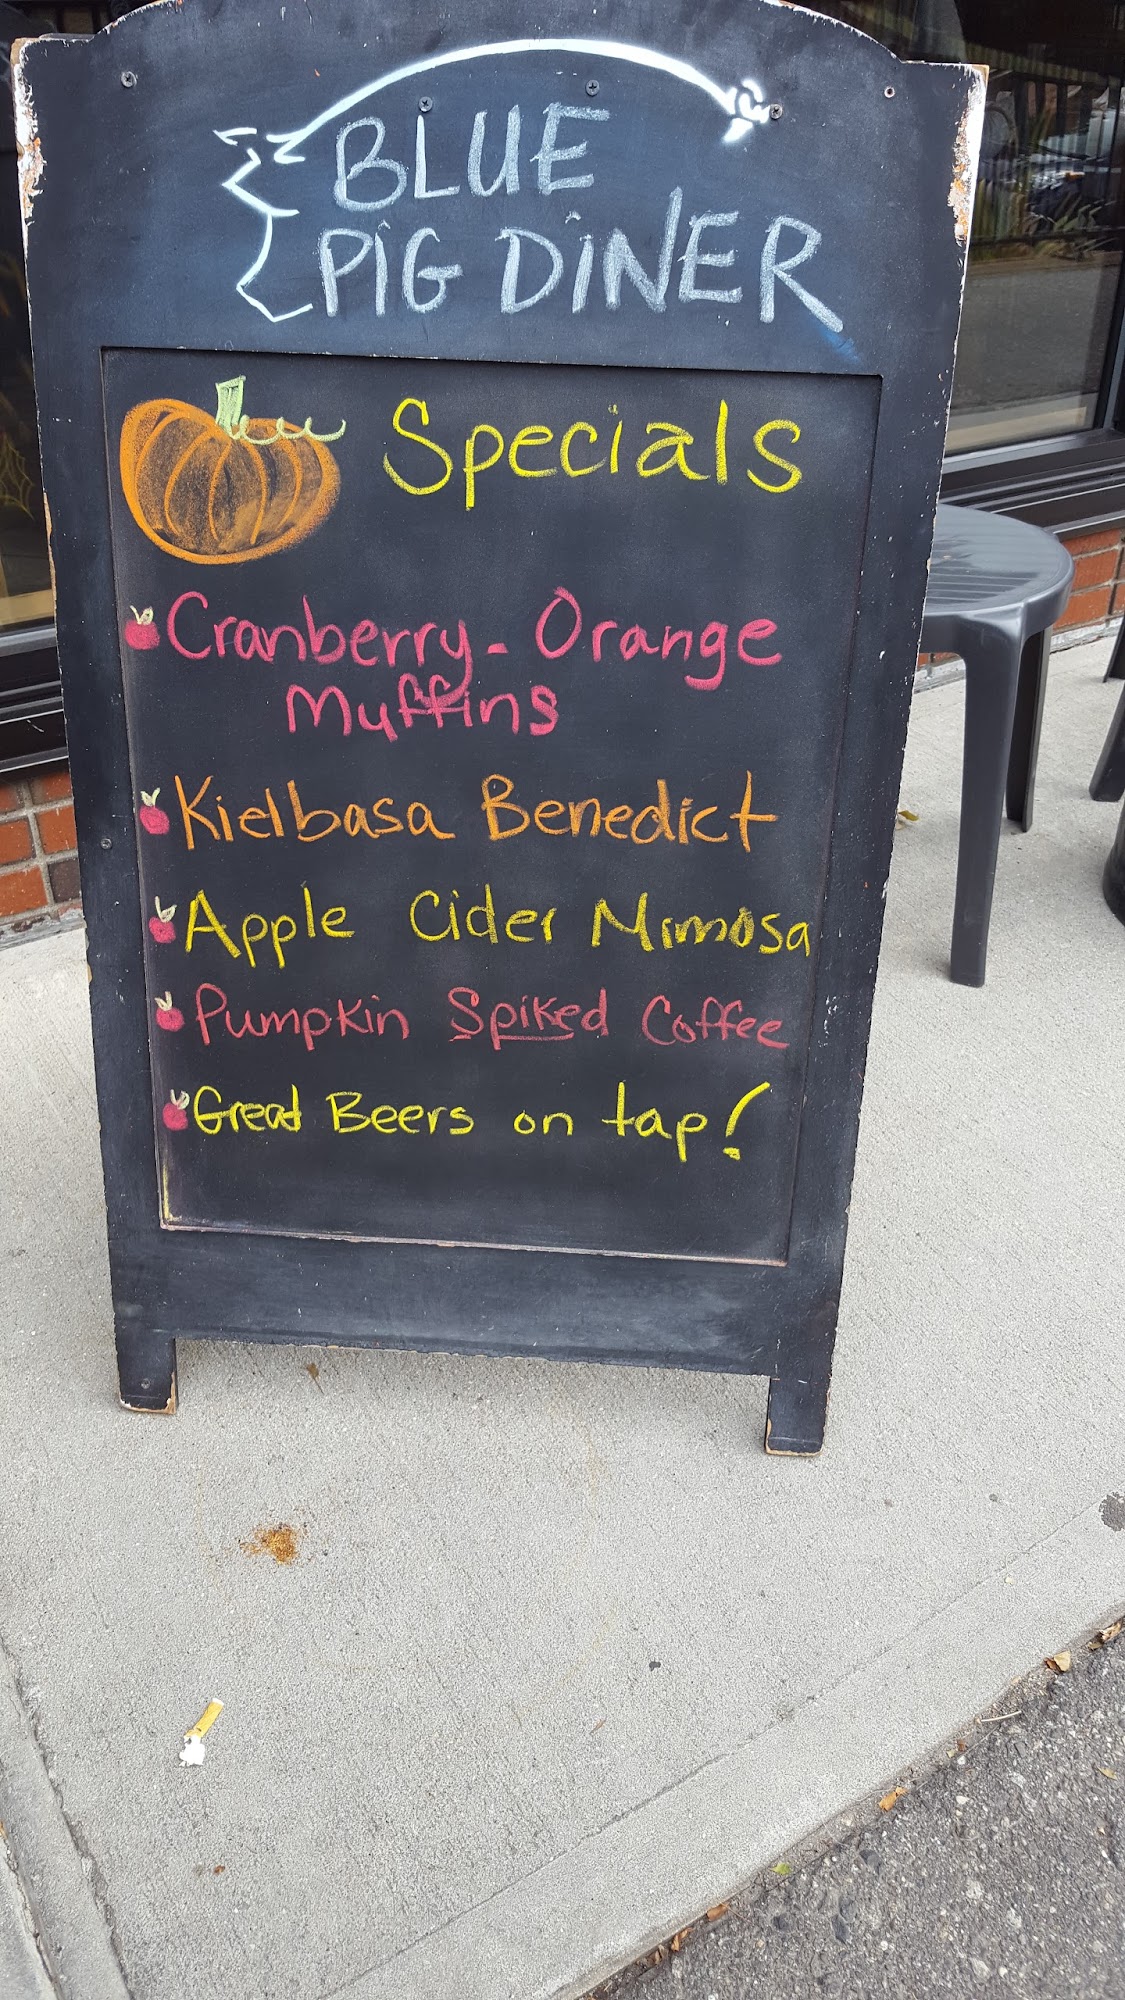 BLUE
PIG DINER
Specials
Cranberry - Orange
Muffins
Kielbasa Benedict
Apple Cider Mimosa
Pumpkin Spiked Coffee
Great Beers on tap!